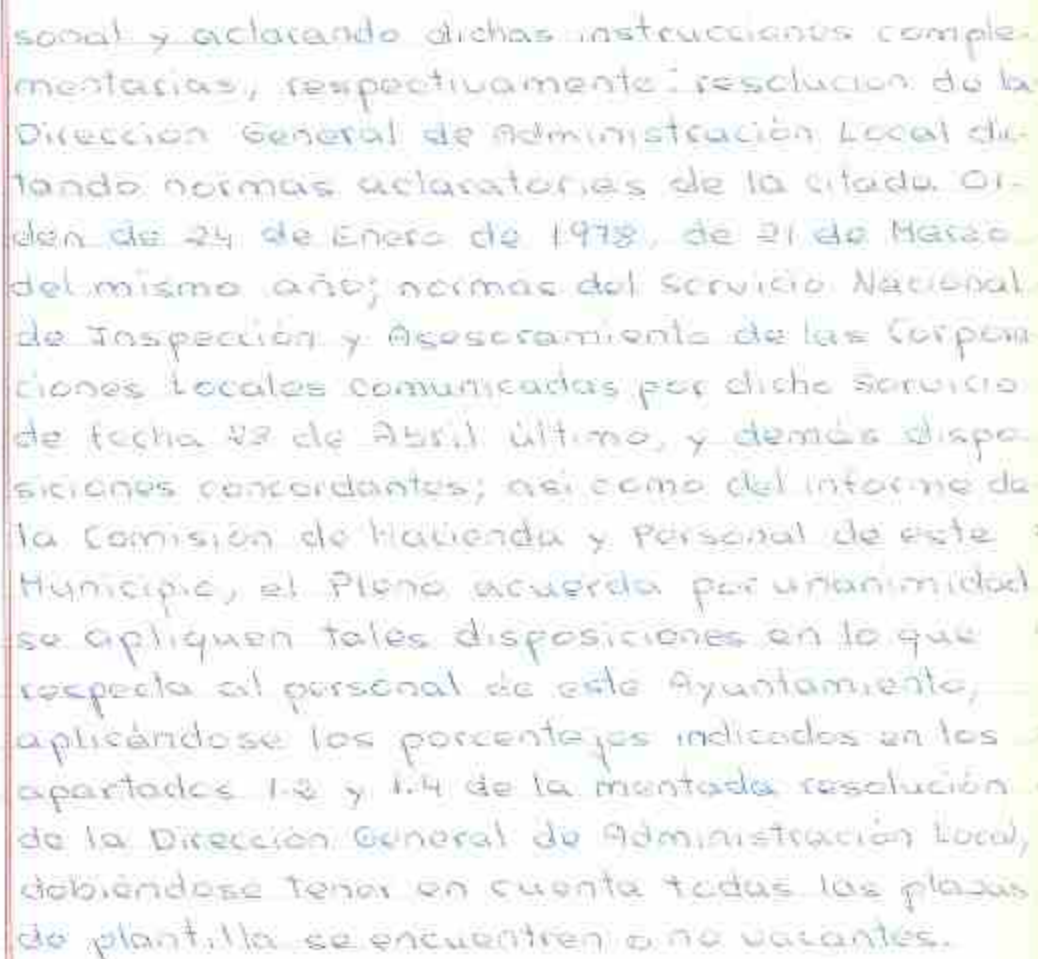 sonal y aclarando dichas instrucciones comple-
mentarias, respectivamente; resolucion de la
Direccion General de Administración Local dic-
tando normas aclaratorias de la citada Or-
den de 24 de Enero de 1978, de 21 de Marzo
del mismo año; normas del Servicio Nacional
de Inspección y Asesoramiento de las Corpora-
ciones Locales comunicadas por dicho Servicio
de fecha de Abril último, y demás dispo-
siciones concordantes; asi como del informe de
la Comisión de Hacienda y Personal de este
Municipio, el Pleno acuerda por unanimidad
se apliquen tales disposiciones en lo que
respecta al personal de este Ayuntamiento,
aplicándose los porcentajes indicados en los
apartados y 1.4 de la mentada resolución
de la Dirección General de Administración Local,
debiéndose tener en cuenta todas las plazas
de plantilla se encuentren o no vacantes.